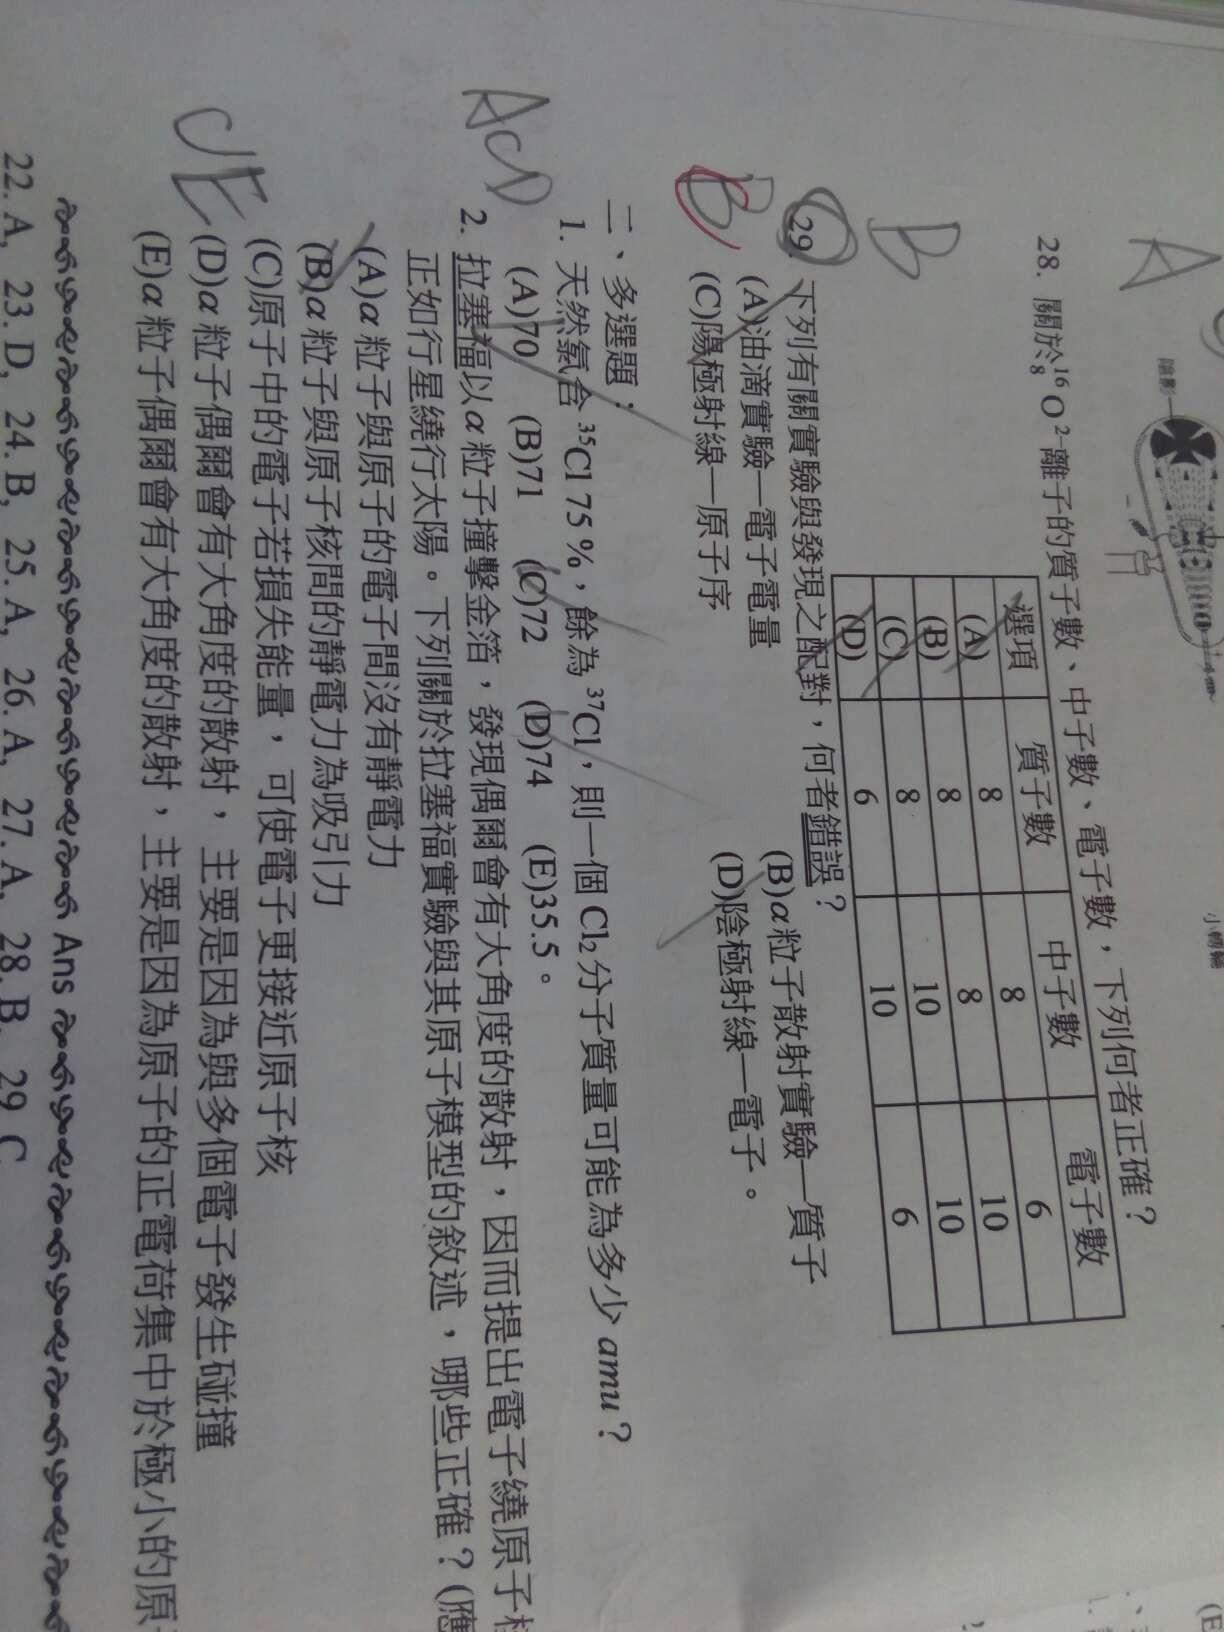 A
陰影
小轉輪
28. 關於¹⁶₈O²⁻離子的質子數、中子數、電子數，下列何者正確？
選項 質子數 中子數 電子數
(A) 8 8 6
(B) 8 8 10
(C) 8 10 10
(D) 6 10 6
B
29. 下列有關實驗與發現之配對，何者錯誤？
(A)油滴實驗—電子電量 (B)α粒子散射實驗—質子
(C)陽極射線—原子序 (D)陰極射線—電子。
B
二、多選題：
1. 天然氯含 ³⁵Cl 75％，餘為 ³⁷Cl，則一個 Cl₂ 分子質量可能為多少 amu？
(A)70 (B)71 (C)72 (D)74 (E)35.5。
ACD
2. 拉塞福以α粒子撞擊金箔，發現偶爾會有大角度的散射，因而提出電子繞原子
正如行星繞行太陽。下列關於拉塞福實驗與其原子模型的敘述，哪些正確？(應
(A)α粒子與原子的電子間沒有靜電力
(B)α粒子與原子核間的靜電力為吸引力
(C)原子中的電子若損失能量，可使電子更接近原子核
(D)α粒子偶爾會有大角度的散射，主要是因為與多個電子發生碰撞
(E)α粒子偶爾會有大角度的散射，主要是因為原子的正電荷集中於極小的原
CE
Ans
22. A, 23. D, 24. B, 25. A, 26. A, 27. A, 28. B, 29. C